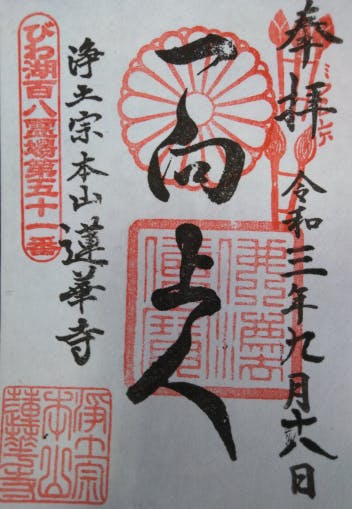 奉拝
令和三年九月十八日
一向上人
浄土宗本山蓮華寺
びわ湖百八霊場第五十一番
浄土宗
本山
蓮華寺